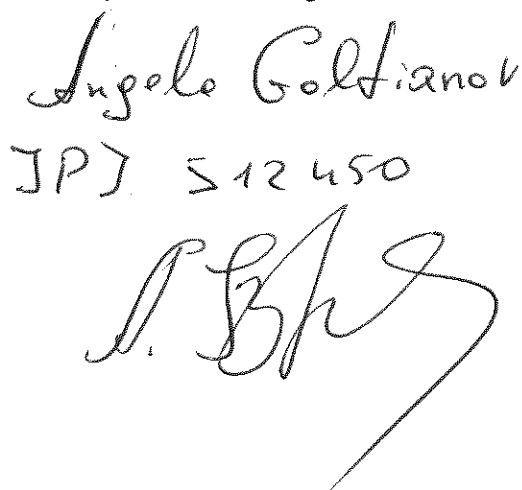 Angelo Goltianov
JPJ 512450